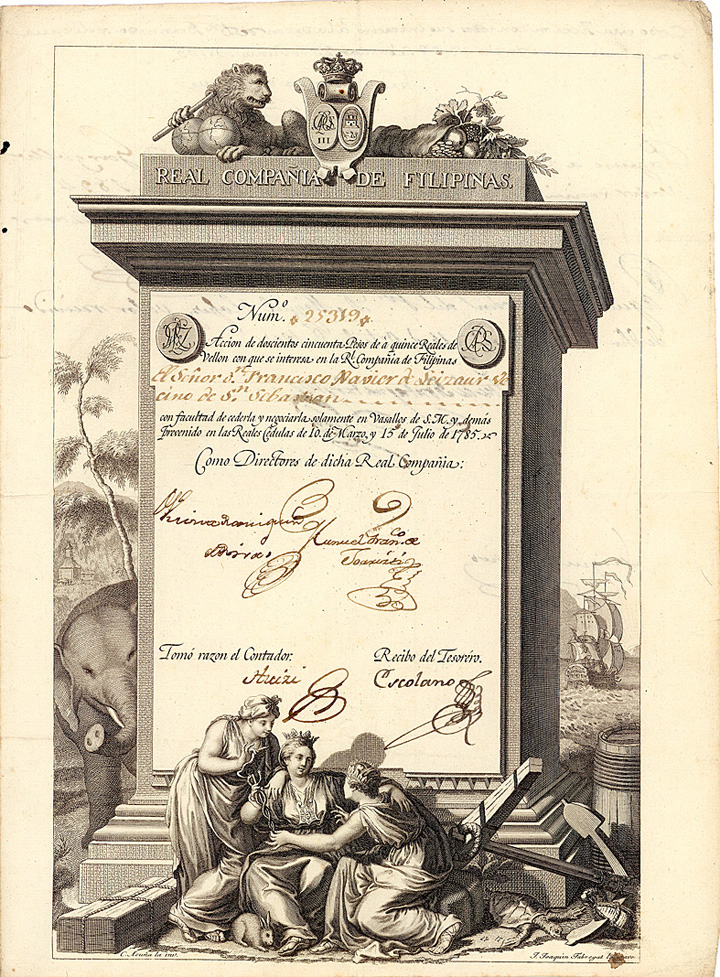 REAL COMPAÑIA DE FILIPINAS.
Num.º 25319
Accion de doscientos cincuenta Pesos de à quince Reales de
Vellon con que se interesa en la Rl. Compañia de Filipinas
El Señor Dn. Francisco Xavier de Leizaur Ve
cino de Sn. Sebastian
con facultad de cederla y negociarla solamente en Vasallos de S.M. y demás
prevenido en las Reales Cédulas de 10. de Marzo, y 15 de Julio de 1785.
Como Directores de dicha Real Compañia:
Manuel Fran.co de
Tomó razon el Contador.
Recibo del Tesoréro.
Escolano
J. Joaquin Fabregat